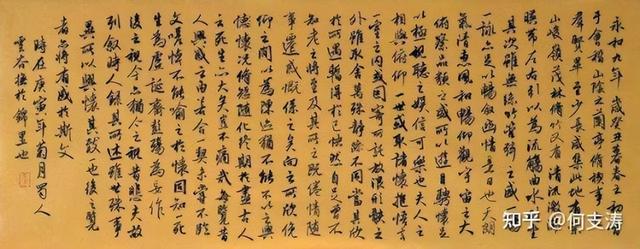 永和九年歲癸丑暮春之初會
于會稽山陰之蘭亭脩禊事也
群賢畢至少長咸集此地有崇
山峻嶺茂林脩竹又有清流激湍
暎帶左右引以為流觴曲水列坐
其次雖無絲竹管弦之盛一觴
一詠亦足以暢敘幽情是日也天朗
氣清惠風和暢仰觀宇宙之大
俯察品類之盛所以遊目騁懷足
以極視聽之娛信可樂也夫人之
相與俯仰一世或取諸懷抱悟言
一室之內或因寄所託放浪形骸之
外雖取舍萬殊靜躁不同當其欣
於所遇暫得於己快然自足不
知老之將至及其所之既倦情隨
事遷感慨係之矣向之所欣俛
仰之間以為陳迹猶不能不以之興
懷況脩短隨化終期於盡古人
云死生亦大矣豈不痛哉每覽昔
人興感之由若合一契未嘗不臨
文嗟悼不能喻之於懷固知一死
生為虛誕齊彭殤為妄作
後之視今亦猶今之視昔悲夫故
列敘時人錄其所述雖世殊事
異所以興懷其致一也後之覽
者亦將有感於斯文
時在庚寅年菊月蜀人
雲谷於錦里也
知乎 @何支涛